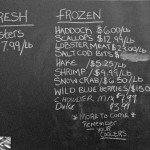 FRESH
sters
7.99/lb
FROZEN
HADDOCK $6.00/lb
SCALLOPS $12.99/lb
LOBSTER MEAT $23.00/lb
SALT COD BITS
HAKE /$5.25/lb
SHRIMP /$9.99/lb
SNOW CRAB/$6.50/lb
WILD BLUE BERRIES/
CHOWDER MIX $7.99
Dulse $3.99
* MORE TO COME *
REMEMBER
YOUR
COOLERS